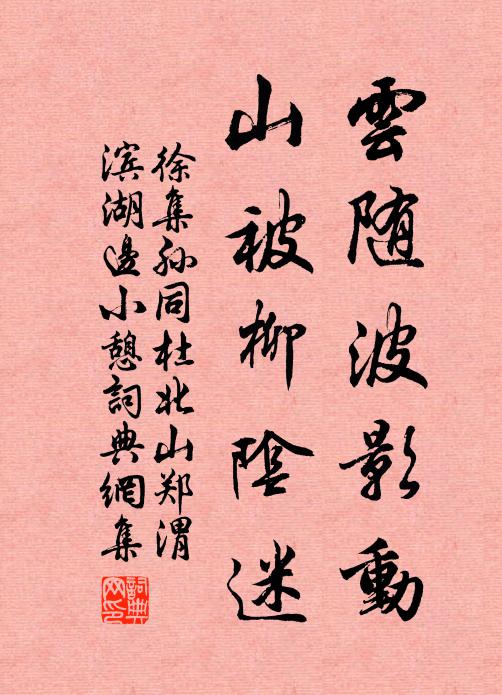 雲随波影動
山被柳陰迷
徐集孙同杜北山郑渭
滨湖邊小憩詞典網集
詞典网印